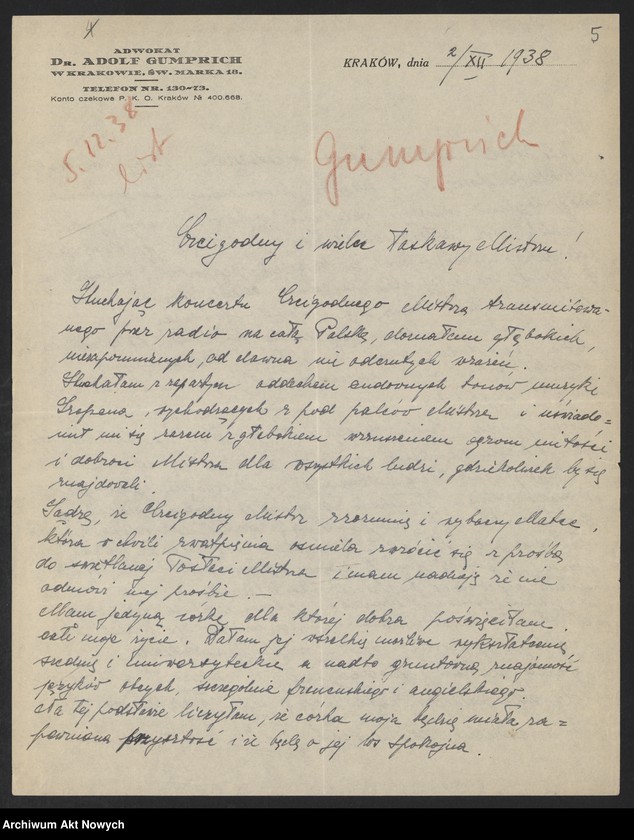 5
ADWOKAT
DR. ADOLF GUMPRICH
W KRAKOWIE, ŚW. MARKA 18.
TELEFON NR. 130-73.
Konto czekowe P. K. O. Kraków № 400.668.
KRAKÓW, dnia 2/XII 1938
5.12.38
list
Gumprich
Czcigodny i wielce Łaskawy Mistrzu!
Słuchając koncertu Czcigodnego Mistrza transmitowa-
nego przez radio na całą Polskę, doznałem głębokich,
niezapomnianych, od dawna nie odczutych wrażeń.
Słuchałam z zapartym oddechem cudownych tonów muzyki
Szopena, wychodzących z pod palców Mistrza i uświado=
mił mi się zarazem z głębokiem wzruszeniem ogrom miłości
i dobroci Mistrza dla wszystkich ludzi, gdziekolwiek by się
znajdowali.
Sądzę, że Czcigodny Mistrz zrozumie i wybaczy Matce,
która w chwili zwątpienia ośmiela zwrócić się z prośbą
do świetlanej Postaci Mistrza i mam nadzieję że nie
odmówi mej prośbie. —
Mam jedyną córkę dla której dobra poświęciłam
całe moje życie. Dałam jej wszelkie możliwe wykształcenie
średnie i uniwersyteckie a nadto gruntowną znajomość
języków obcych, szczególnie francuskiego i angielskiego.
Na tej podstawie liczyłam, że córka moja będzie miała za=
pewnioną przyszłość i że będę o jej los spokojna.
Archiwum Akt Nowych